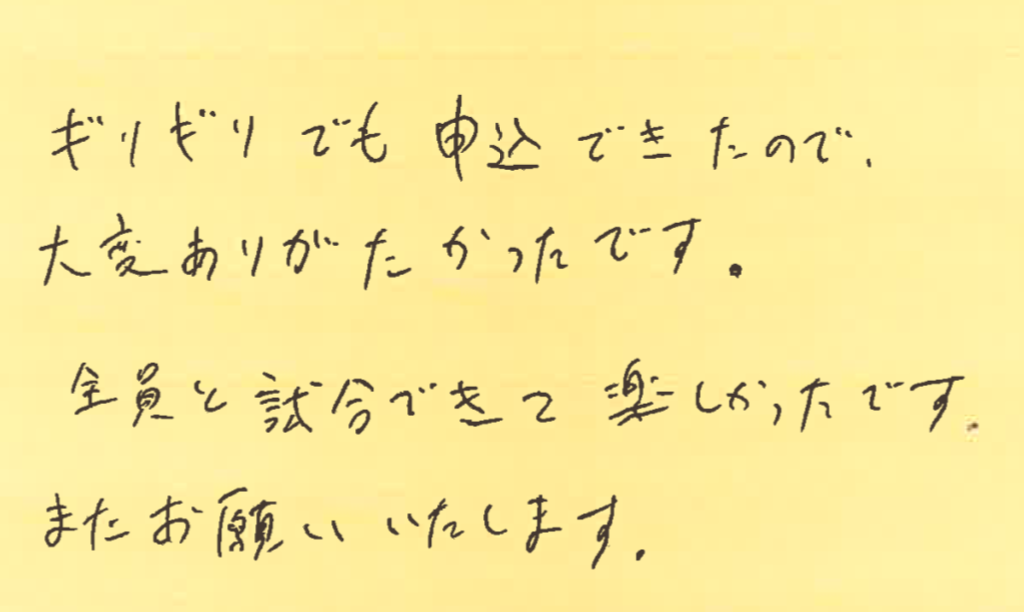 ギリギリでも申込できたので、
大変ありがたかったです。
全員と試合できて楽しかったです。
またお願いいたします。